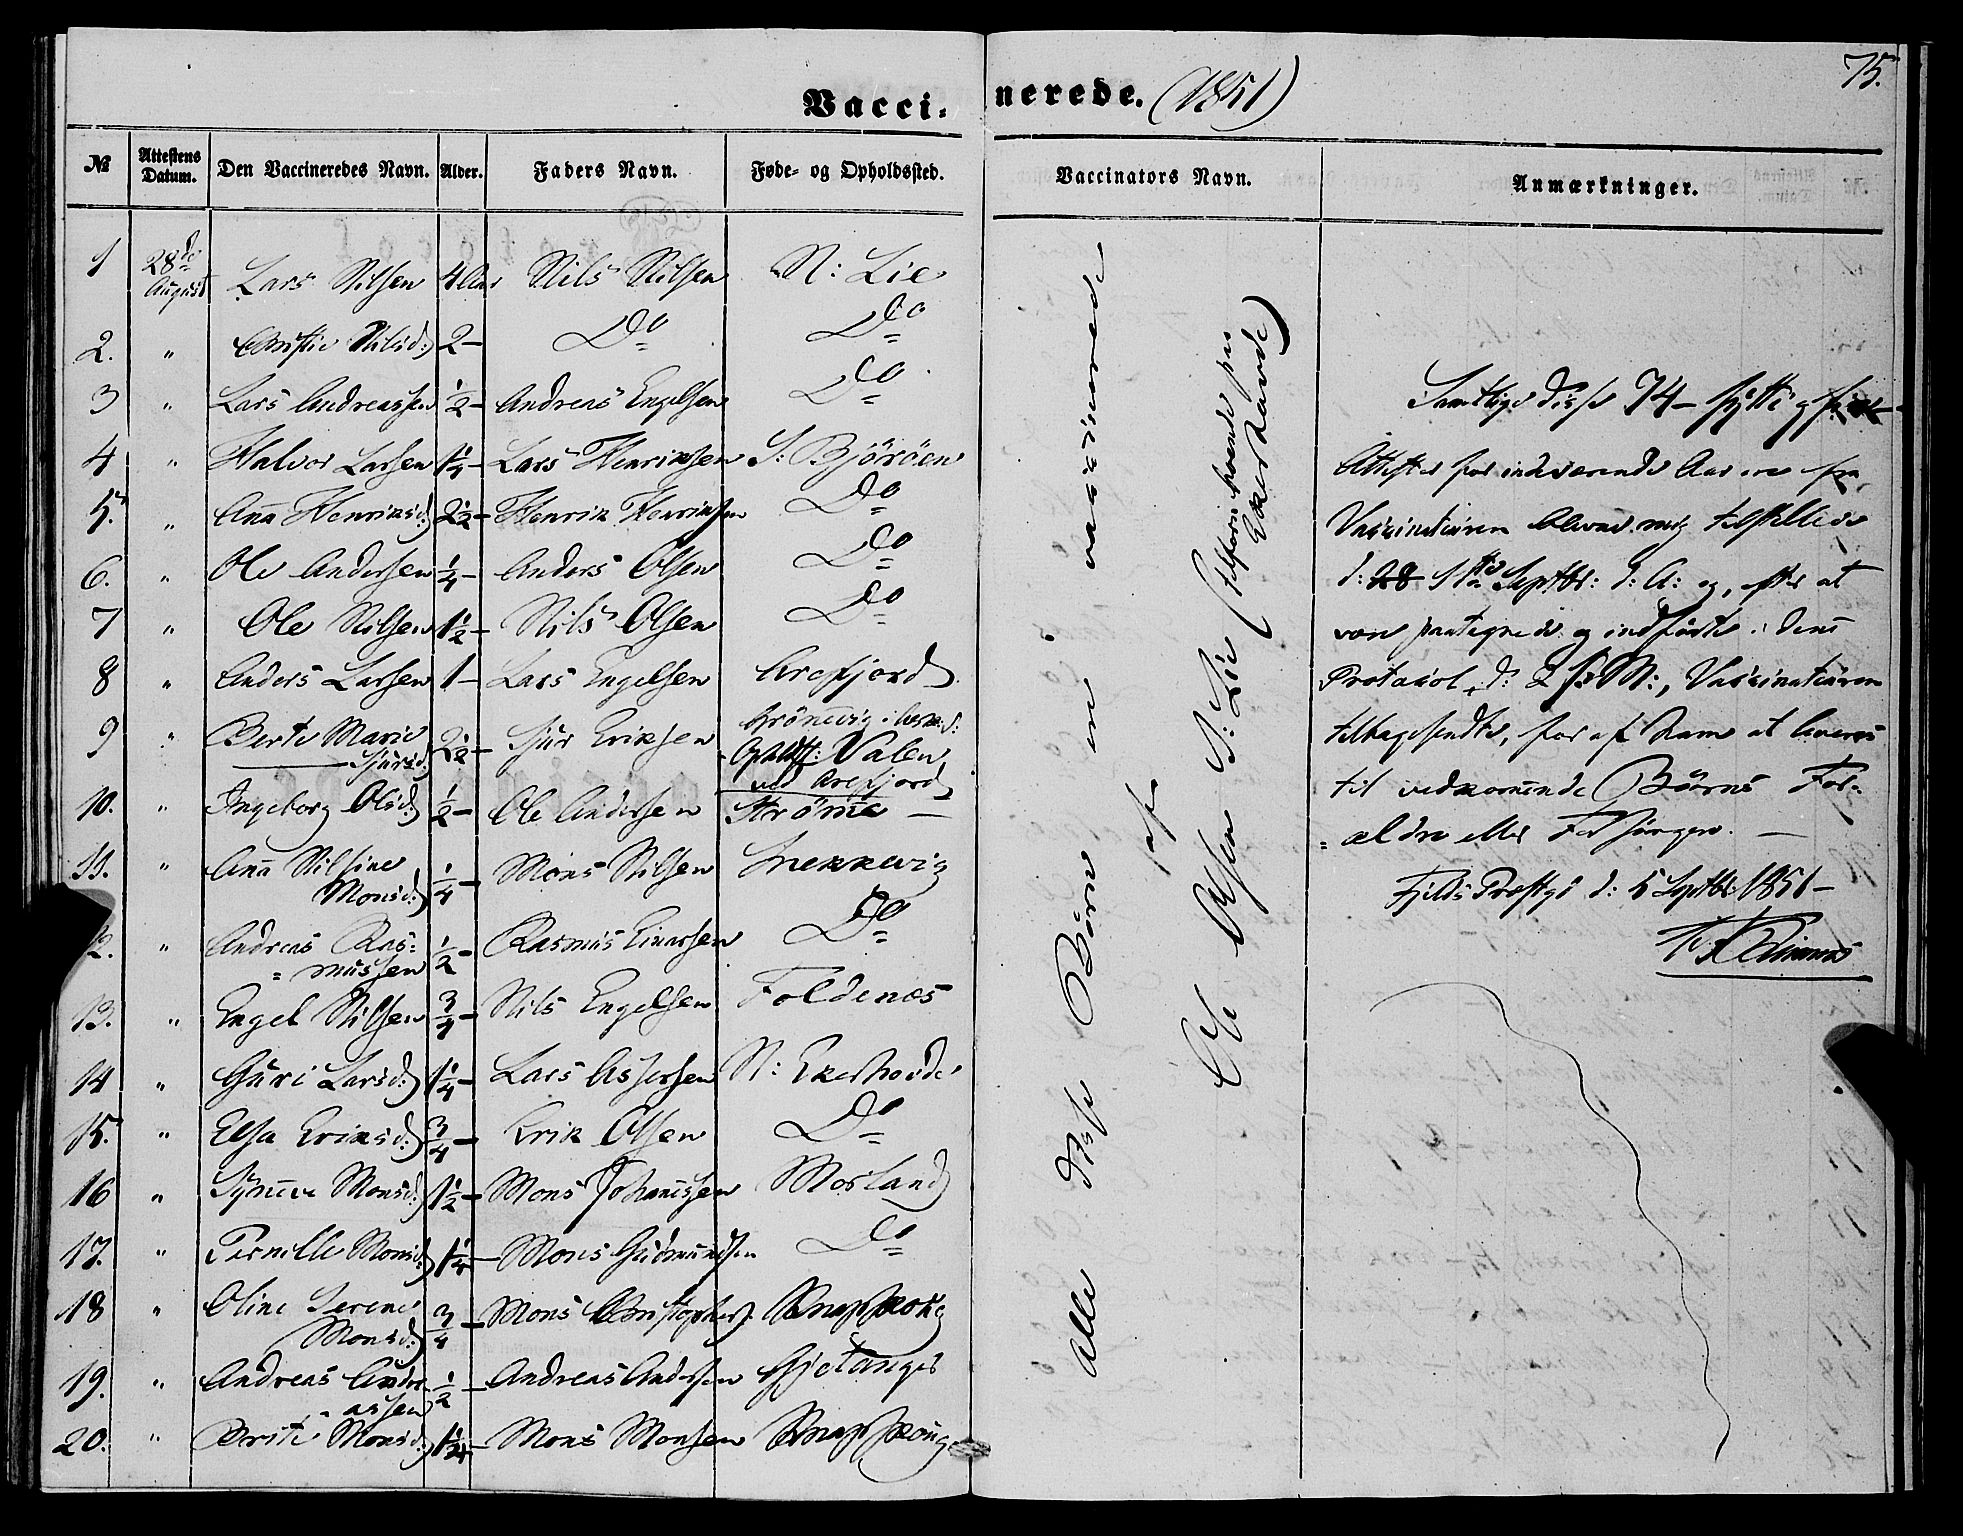 75.
Vacci- nerede. (1851)
№ | Attestens Datum. | Den Vaccineredes Navn. | Alder. | Faders Navn. | Føde- og Opholdssted. | Vaccinators Navn. | Anmærkninger.
1 | 28de August | Lars Nilsen | 4 Aar | Nils Nilsen | N: Lie
2. | " | Christie Nilsd: | 2 – | Do | Do
3 | " | Lars Andreassen | ½ – | Andreas Engelsen | Do
4 | " | Halvor Larsen | 1¼ – | Lars Henriksen | S: Björöen
5. | " | Anna Henriksd: | 2½ – | Henrik Henriksen | Do
6. | " | Ole Andersen | ¼ – | Anders Olsen | Do
7 | " | Ole Nilsen | 1½ – | Nils Olsen | Do
8 | " | Anders Larsen | 1 – | Lars Engelsen | Arefjord
9 | " | Berte Marie Sjursd: | 2½ – | Sjur Eriksen | Opholdst: Valen ved Arefjord
10. | " | Ingeborg Olsd: | ½ – | Ole Andersen | Strömme —
11. | " | Anna Nilsine Monsd: | ¼ – | Mons Nilsen | Snekkevig
12. | " | Andreas Ras-
= mussen | ½ – | Rasmus Einarsen | Do
13. | " | Engel Nilsen | ¾ – | Nils Engelsen | Foldenæs
14 | " | Guri Larsd: | 1¼ – | Lars Assersen | N: Ekerhovde
15. | " | Elsa Eriksd: | ¾ – | Erik Olsen | Do
16 | " | Synneve Monsd: | 1½ – | Mons Johannessen | Morland
17. | " | Pernille Monsd: | 1¼ – | Mons Gudmundsen | Do
18 | " | Oline Serene Monsd: | ¾ – | Mons Christophers: | Knapskog
19. | " | Andreas Andre-
assen | ½ – | Andreas Andersen | Gjetanger
20. | " | Berte Monsd: | 1¼ – | Mons Monsen | Knapskoug
Alle disse Börn ere vaccinerede
af
Ole Olsen N: Lie (tilforn boende paa
Ekerhovde)
Samtlige disse 74 – sytti og fire –
Attester for indeværende Aar ere fra
Vaccinateuren blevne mig tilstillede
d: 28 1ste Septbr: d: A: og, efter at
være paategnede og indførte i denne
Protokol, d: 2 s: M:, Vaccinateuren
tilbagesendte, for af ham at leveres
til vedkommende Börns For-
= ældre eller Forsörgere. —
Fjelds Præstgd d: 5 Septbr: 1851 –